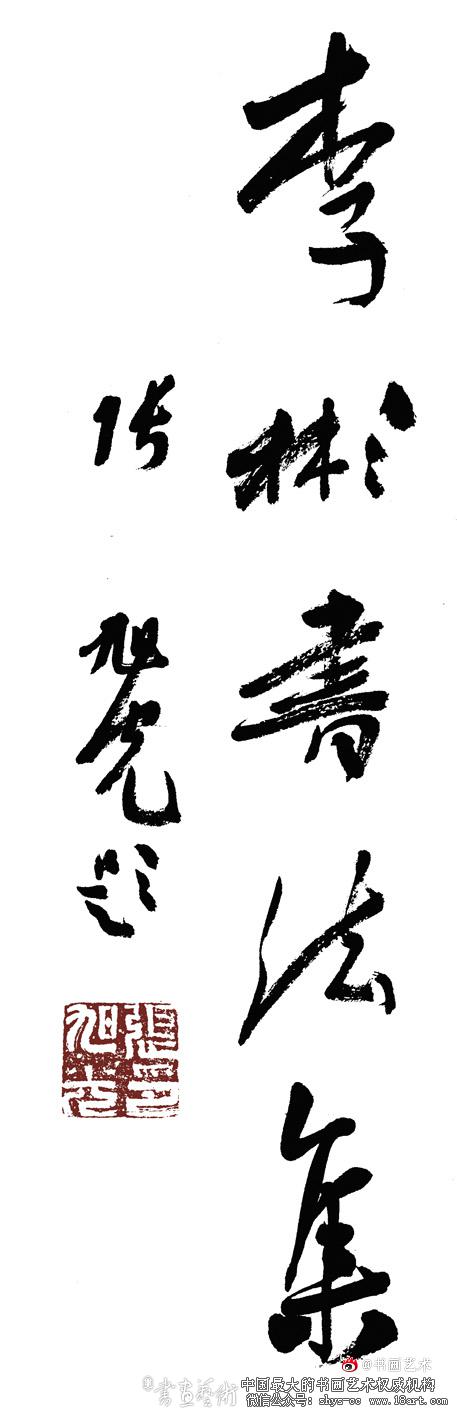 李彬书法集
张旭光题
张旭光印
@书画艺术
書畫藝術
中国最大的书画艺术权威机构
微信公众号：shys-cc www.18art.com